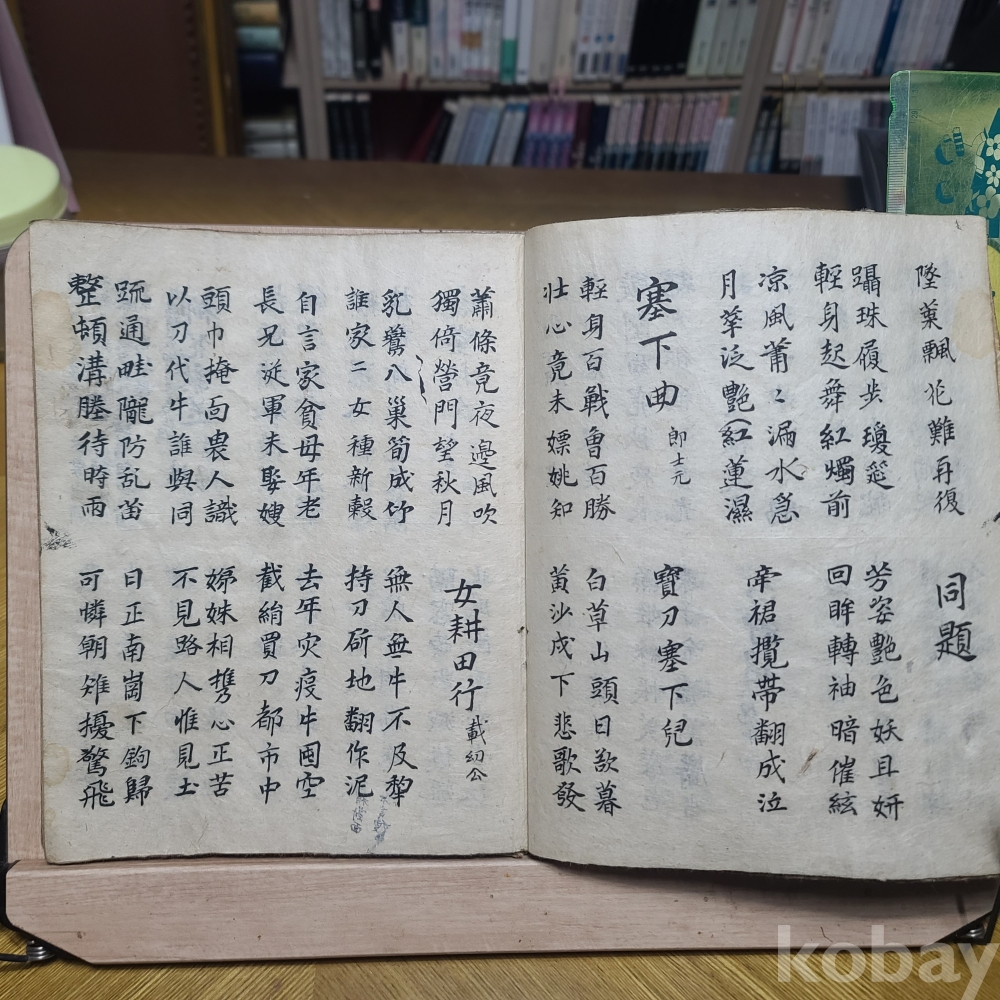 墜葉飄花難再復
同題
躡珠履步瓊筵
輕身起舞紅燭前
芳姿艷色妖且妍
回眸轉袖暗催絃
凉風蕭〻漏水急
月華泛艷紅蓮濕
牽裙攬帶翻成泣
塞下曲 郎士元
寶刀塞下兒
輕身百戰曾百勝
壯心竟未嫖姚知
白草山頭日欲暮
黃沙戍下悲歌發
蕭條竟夜邊風吹
獨倚營門望秋月
女耕田行 載幼公
乳鷰入巢筍成竹
誰家二女種新穀
無人無牛不及犂
持刀斫地翻作泥
自言家貧母年老
長兄從軍未娶嫂
去年灾疫牛囤空
截絹買刀都市中
頭巾掩面畏人識
以刀代牛誰與同
姊妹相携心正苦
不見路人惟見土
疏通畦隴防乱苗
整頓溝塍待時雨
日正南崗下餉歸
可憐朝雉擾驚飛
kobay